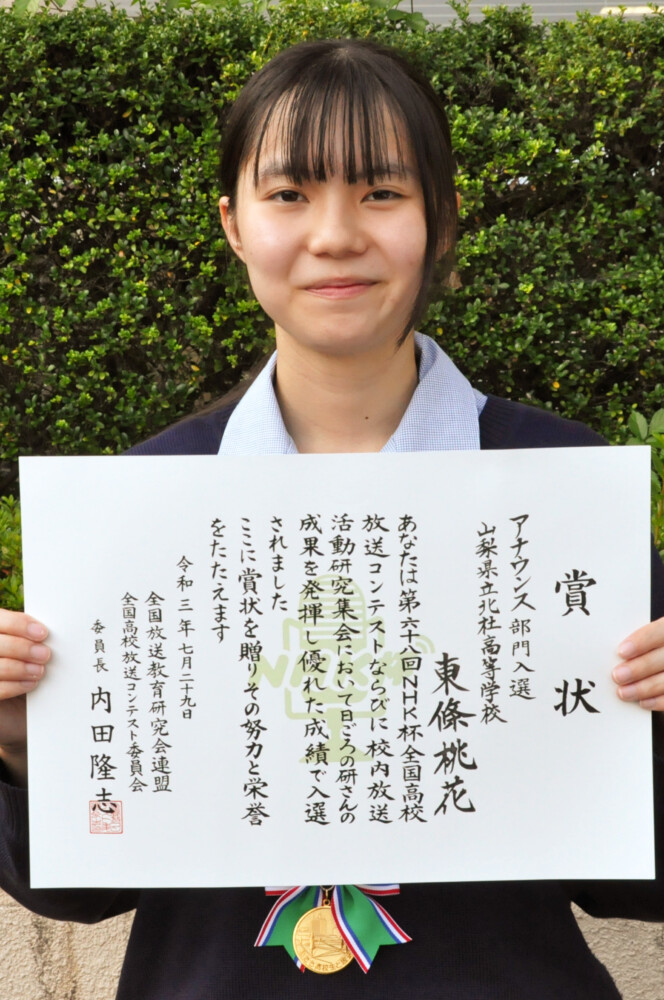 賞状
アナウンス部門入選
山梨県立北杜高等学校
東條桃花
あなたは第六十八回NHK杯全国高校
放送コンテストならびに校内放送
活動研究集会において日ごろの研さんの
成果を発揮し優れた成績で入選
されました
ここに賞状を贈りその努力と栄誉
をたたえます
令和三年七月二十九日
全国放送教育研究会連盟
全国高校放送コンテスト委員会
委員長 内田隆志